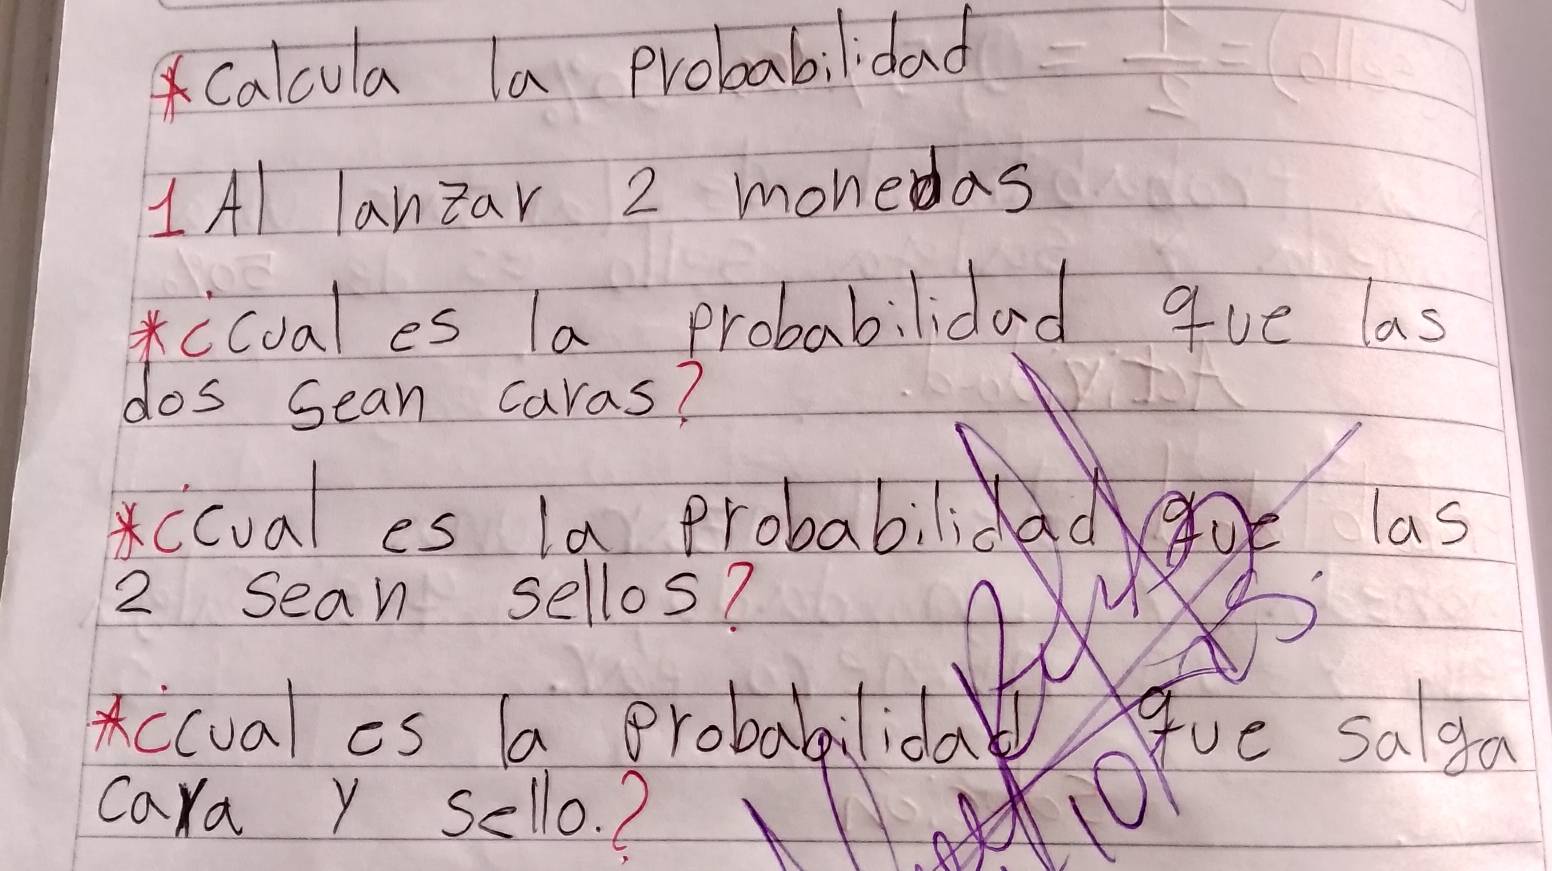 * Calcula la probabilidad
1 Al lanzar 2 monedas
* ¿Cual es la probabilidad que las
dos sean caras?
* ¿Cual es la probabilidad que las
2 sean sellos?
* ¿Cual es la probabilidad que salga
cara y sello.?